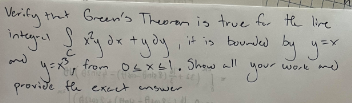 Verify that Green's Theorem is true for the line
integral ∫_C x²y dx + y dy, it is bounded by y=x
and y=x³, from 0≤x≤1. Show all your work and
provide the exact answer